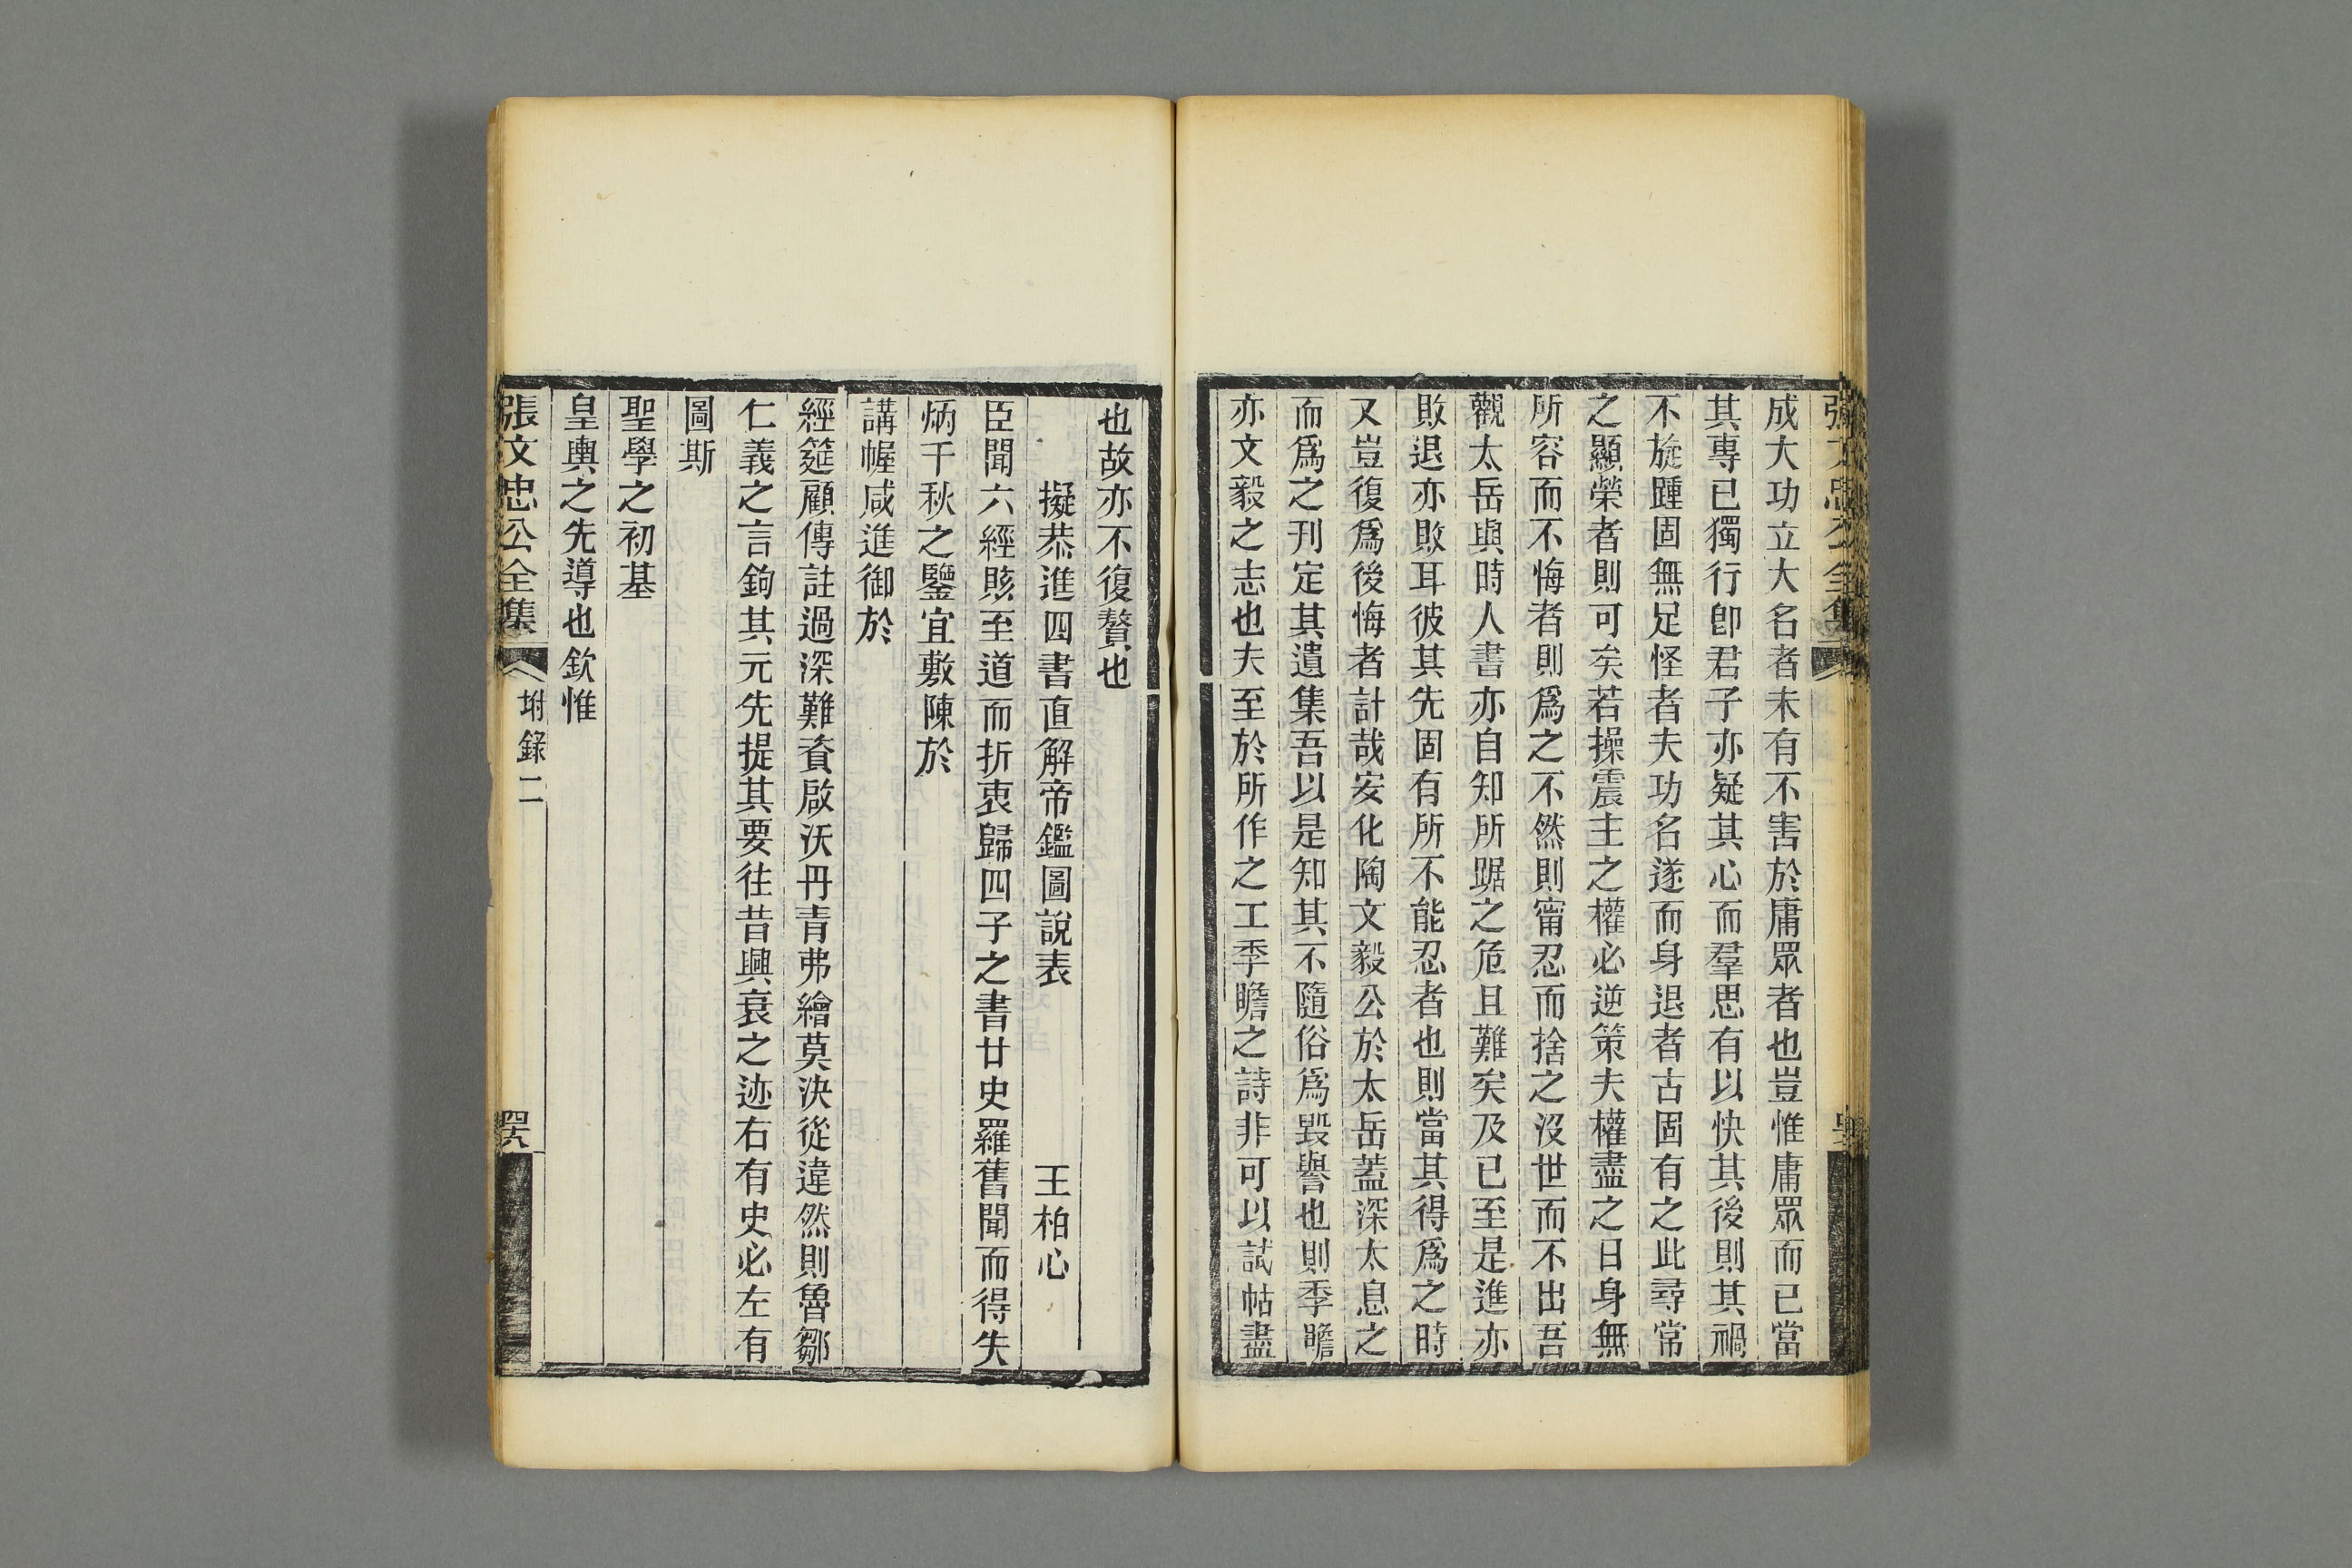 張文忠公全集
成大功立大名者未有不害於庸眾者也豈惟庸眾而已當
其專已獨行卽君子亦疑其心而羣思有以快其後則其禍
不旋踵固無足怪者夫功名遂而身退者古固有之此尋常
之顯榮者則可矣若操震主之權必逆策夫權盡之日身無
所容而不悔者則爲之不然則甯忍而捨之沒世而不出吾
觀太岳與時人書亦自知所踞之危且難矣及已至是進亦
敗退亦敗耳彼其先固有所不能忍者也則當其得爲之時
又豈復爲後悔者計哉安化陶文毅公於太岳葢深太息之
而爲之刊定其遺集吾以是知其不隨俗爲毀譽也則季瞻
亦文毅之志也夫至於所作之工季瞻之詩非可以試帖盡
也故亦不復贅也
擬恭進四書直解帝鑑圖說表 王柏心
臣聞六經賅至道而折衷歸四子之書廿史羅舊聞而得失
炳千秋之鑒宜敷陳於
講幄咸進御於
經筵顧傳註過深難資啟沃丹青弗繪莫決從違然則魯鄒
仁義之言鉤其元先提其要往昔興衰之迹右有史必左有
圖斯
聖學之初基
皇輿之先導也欽惟
張文忠公全集 坿錄二 罢八